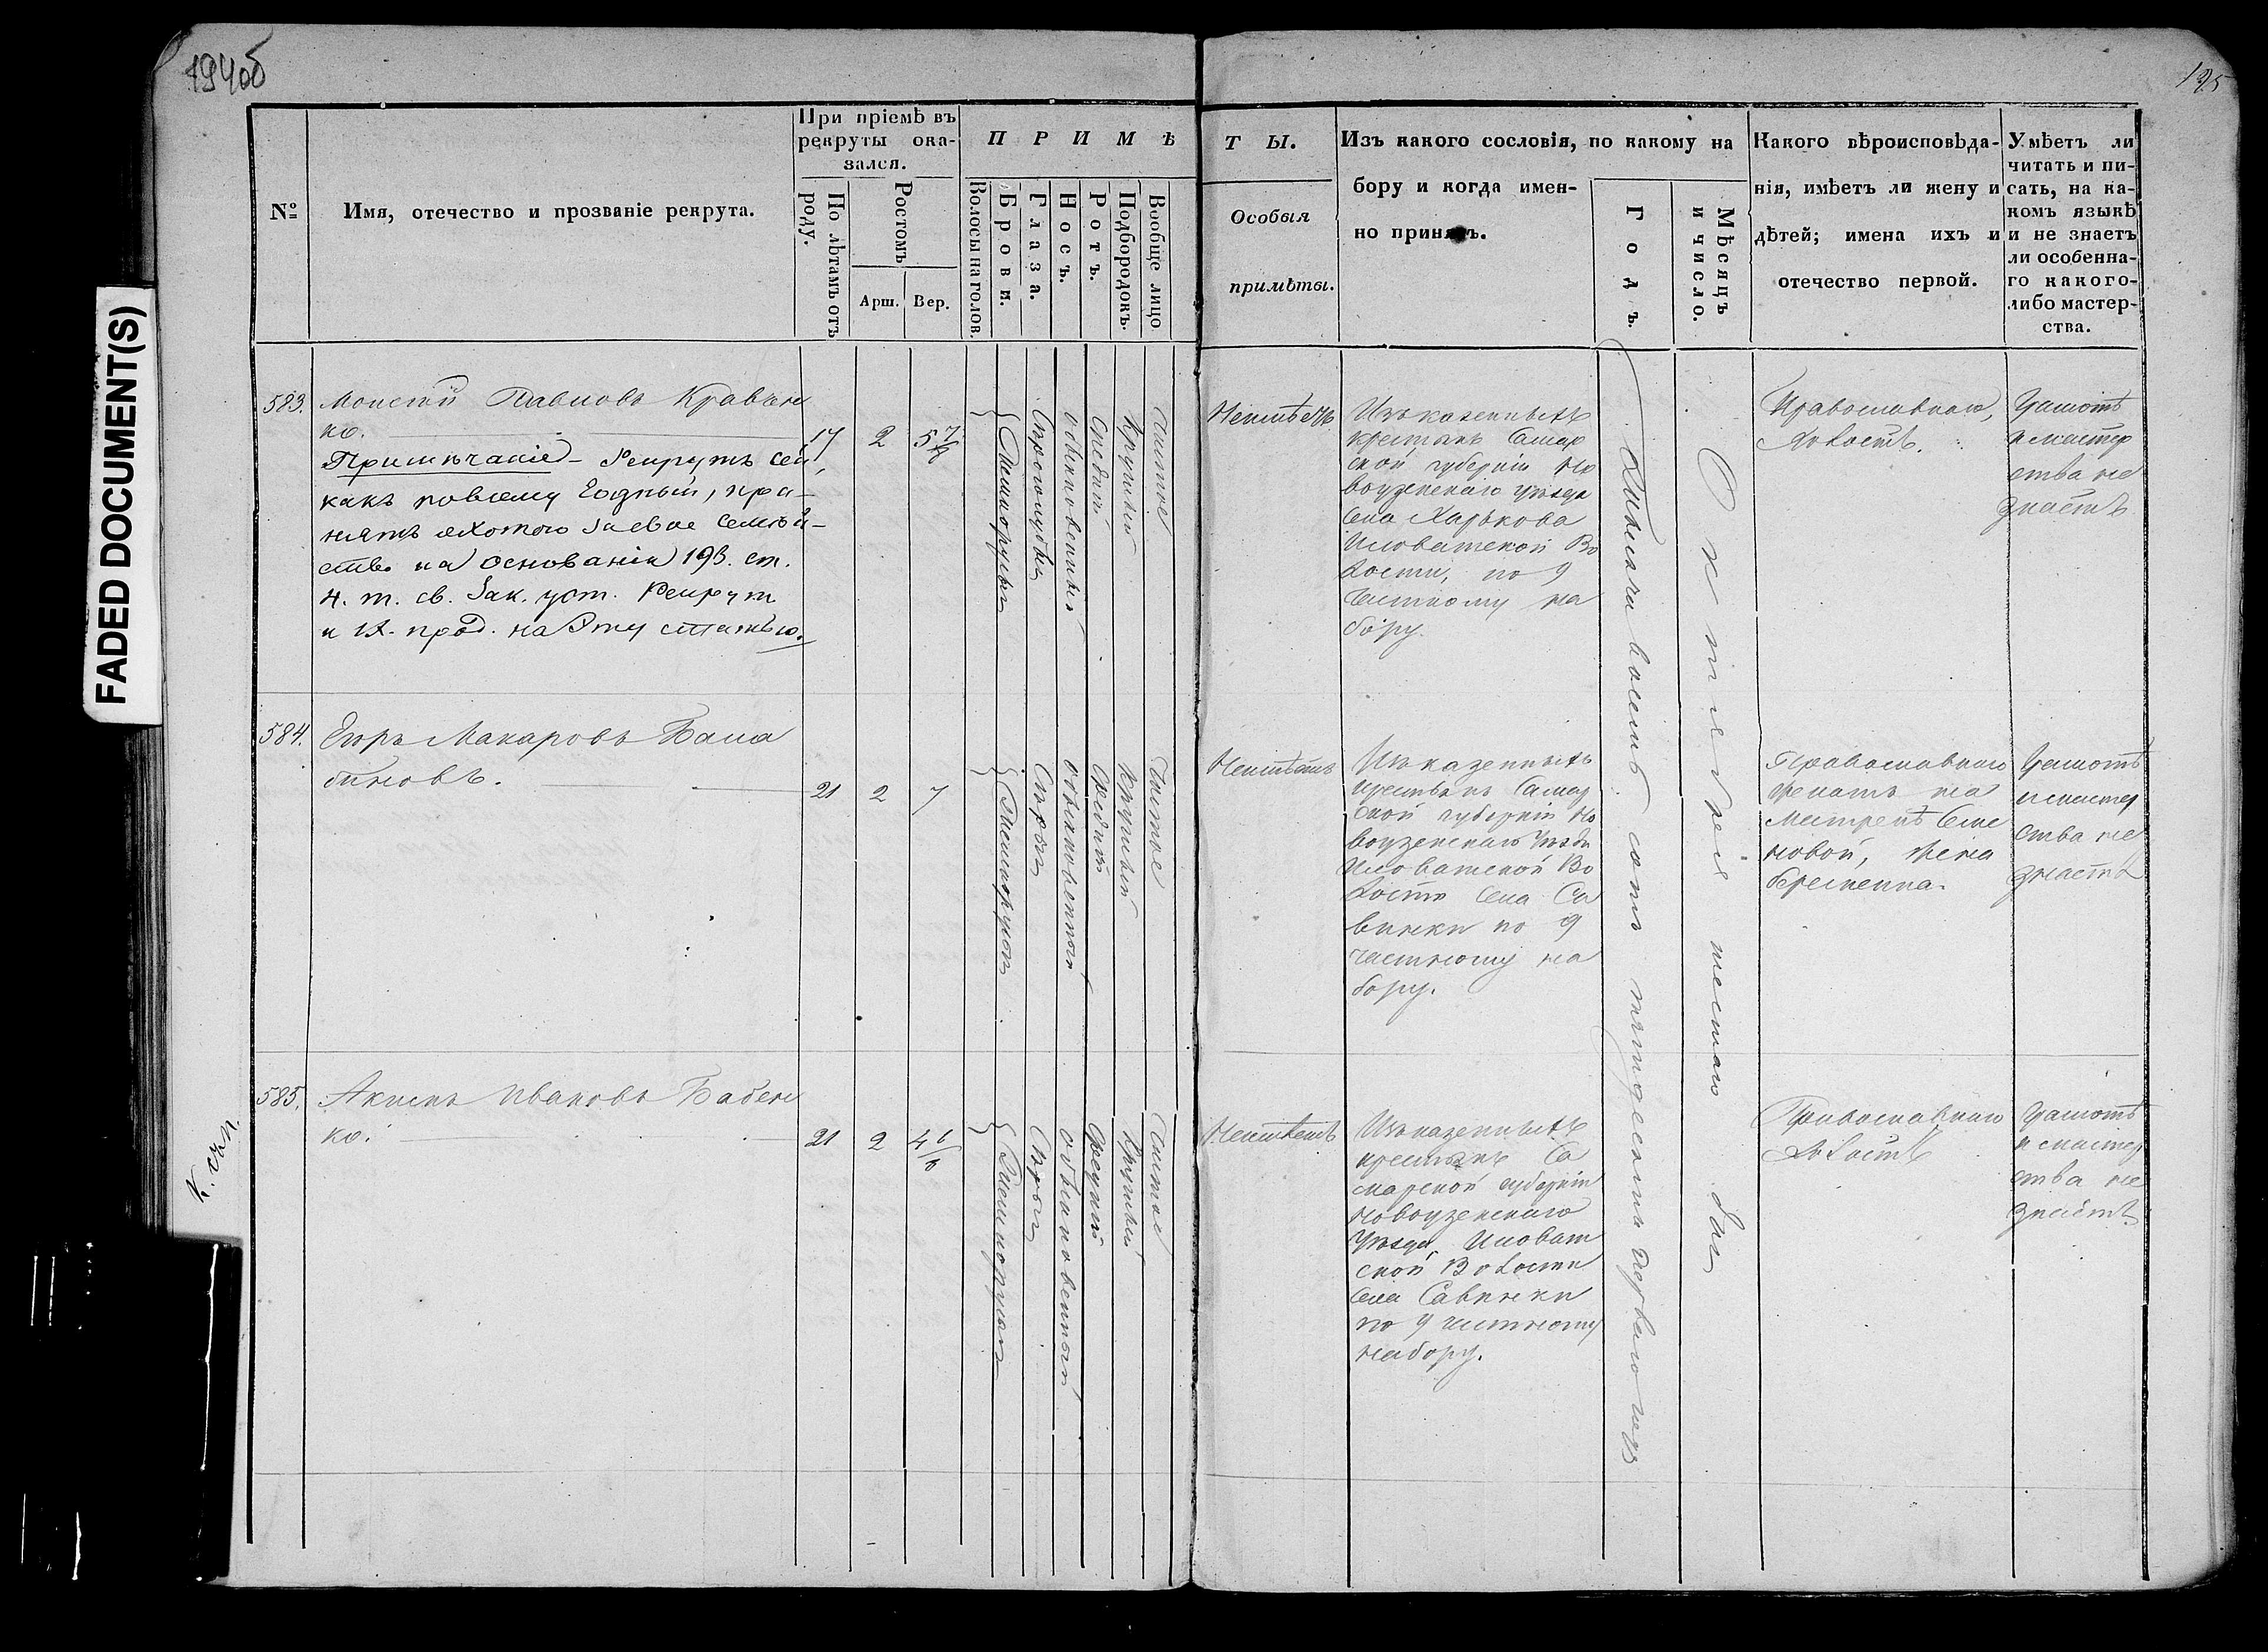 194об
195
FADED DOCUMENT(S)
№
Имя, отечество и прозваніе рекрута.
При пріемѣ въ
рекруты ока-
зался.
По лѣтамъ отъ
роду.
Ростомъ
Арш.
Вер.
ПРИМѢ
Волосы на голов.
Брови.
Глаза.
Носъ.
Ротъ.
Подбородокъ.
Вообще лицо
ТЫ.
Особыя
примѣты.
Изъ какого сословія, по какому на
бору и когда имен-
но принятъ.
Годъ.
Мѣсяцъ
и число.
Какого вѣроисповѣда-
нія, имѣетъ ли жену и
дѣтей; имена ихъ и
отечество первой.
Умѣетъ ли
читать и пи-
сать, на ка-
комъ языкѣ
и не знаетъ
ли особенна-
го какого-
либо мастер-
ства.
583.
Моисей Павловъ Кравчен
ко.
Примѣчаніе - Рекрутъ сей,
какъ по всему годный, при-
нятъ охотою за свое семѣй-
ство на основаніи 193. ст.
4. т. св. Зак. уст. Рекрут
и IX. прод. на эту статью.
17
2
5 7/8
Темнорусыя
Сѣроголубыя
обыкновенный
Средній
Круглый
Чистое
Неимѣетъ
Изъ казенныхъ
крестьянъ Самар
ской губерніи Но
воузенскаго уѣзда
Села Харькова
Иловатской Во
лости, по 9
частному на
бору.
Тысяча восемь сотъ пятдесятъ перваго года
Октября шестаго дня
Православнаго,
Холостъ.
Грамотѣ
и мастер
ства не
знаетъ
584.
Егоръ Макаровъ Бала
биновъ.
21
2
7
Темнорусыя
Сѣрыя
обыкновенный
Средній
Круглый
Чистое
Неимѣетъ
Изъ казенныхъ
крестьянъ Самар
ской губерніи Но
воузенскаго Уѣзда
Иловатской Во
лости Села Са
винки по 9
частному на
бору.
Православнаго
женатъ на
Матренѣ Семе
новой, жена
беременна.
Грамотѣ
и мастер
ства не
знаетъ
585.
Акимъ Ивановъ Бабен
ко.
21
2
Темнорусыя
Сѣрыя
обыкновенный
Средній
Круглый
Чистое
Неимѣетъ
Изъ казенныхъ
крестьянъ Са
марской губерніи
Новоузенскаго
Уѣзда Иловат
ской Волости
Села Савинки
по 9 частному
набору.
Православнаго
Холостъ
Грамотѣ
и мастер
ства не
знаетъ